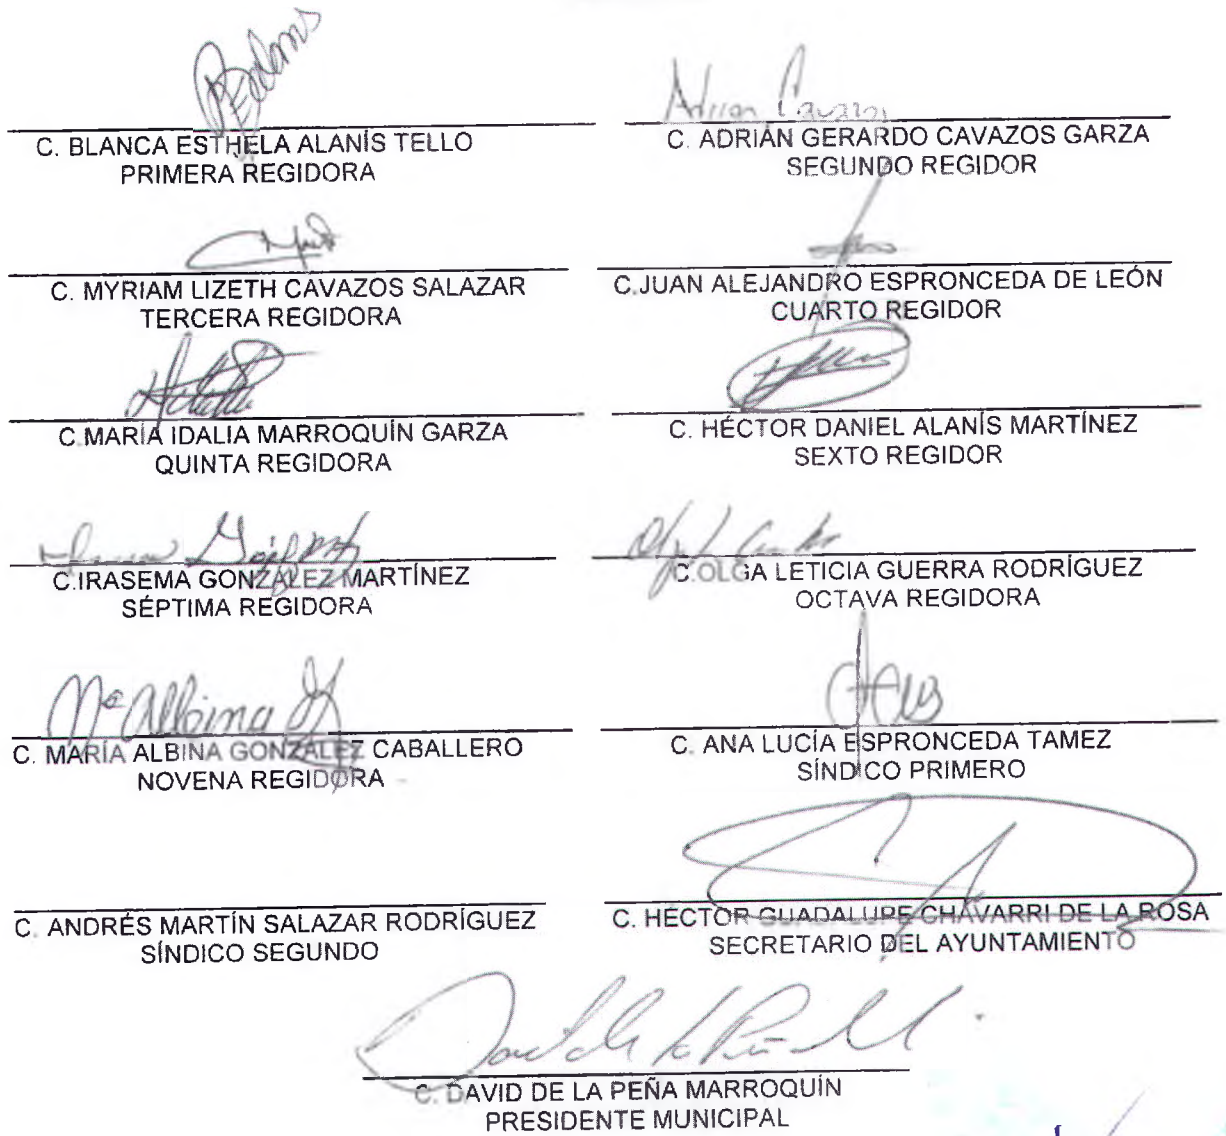 Adrian Cavazos
C. BLANCA ESTHELA ALANÍS TELLO
PRIMERA REGIDORA
C. ADRIÁN GERARDO CAVAZOS GARZA
SEGUNDO REGIDOR
C. MYRIAM LIZETH CAVAZOS SALAZAR
TERCERA REGIDORA
C.JUAN ALEJANDRO ESPRONCEDA DE LEÓN
CUARTO REGIDOR
C.MARÍA IDALIA MARROQUÍN GARZA
QUINTA REGIDORA
C. HÉCTOR DANIEL ALANÍS MARTÍNEZ
SEXTO REGIDOR
C.IRASEMA GONZÁLEZ MARTÍNEZ
SÉPTIMA REGIDORA
C.OLGA LETICIA GUERRA RODRÍGUEZ
OCTAVA REGIDORA
Ma Albina
C. MARÍA ALBINA GONZÁLEZ CABALLERO
NOVENA REGIDORA
C. ANA LUCÍA ESPRONCEDA TAMEZ
SÍNDICO PRIMERO
C. ANDRÉS MARTÍN SALAZAR RODRÍGUEZ
SÍNDICO SEGUNDO
C. HÉCTOR GUADALUPE CHAVARRI DE LA ROSA
SECRETARIO DEL AYUNTAMIENTO
C. DAVID DE LA PEÑA MARROQUÍN
PRESIDENTE MUNICIPAL